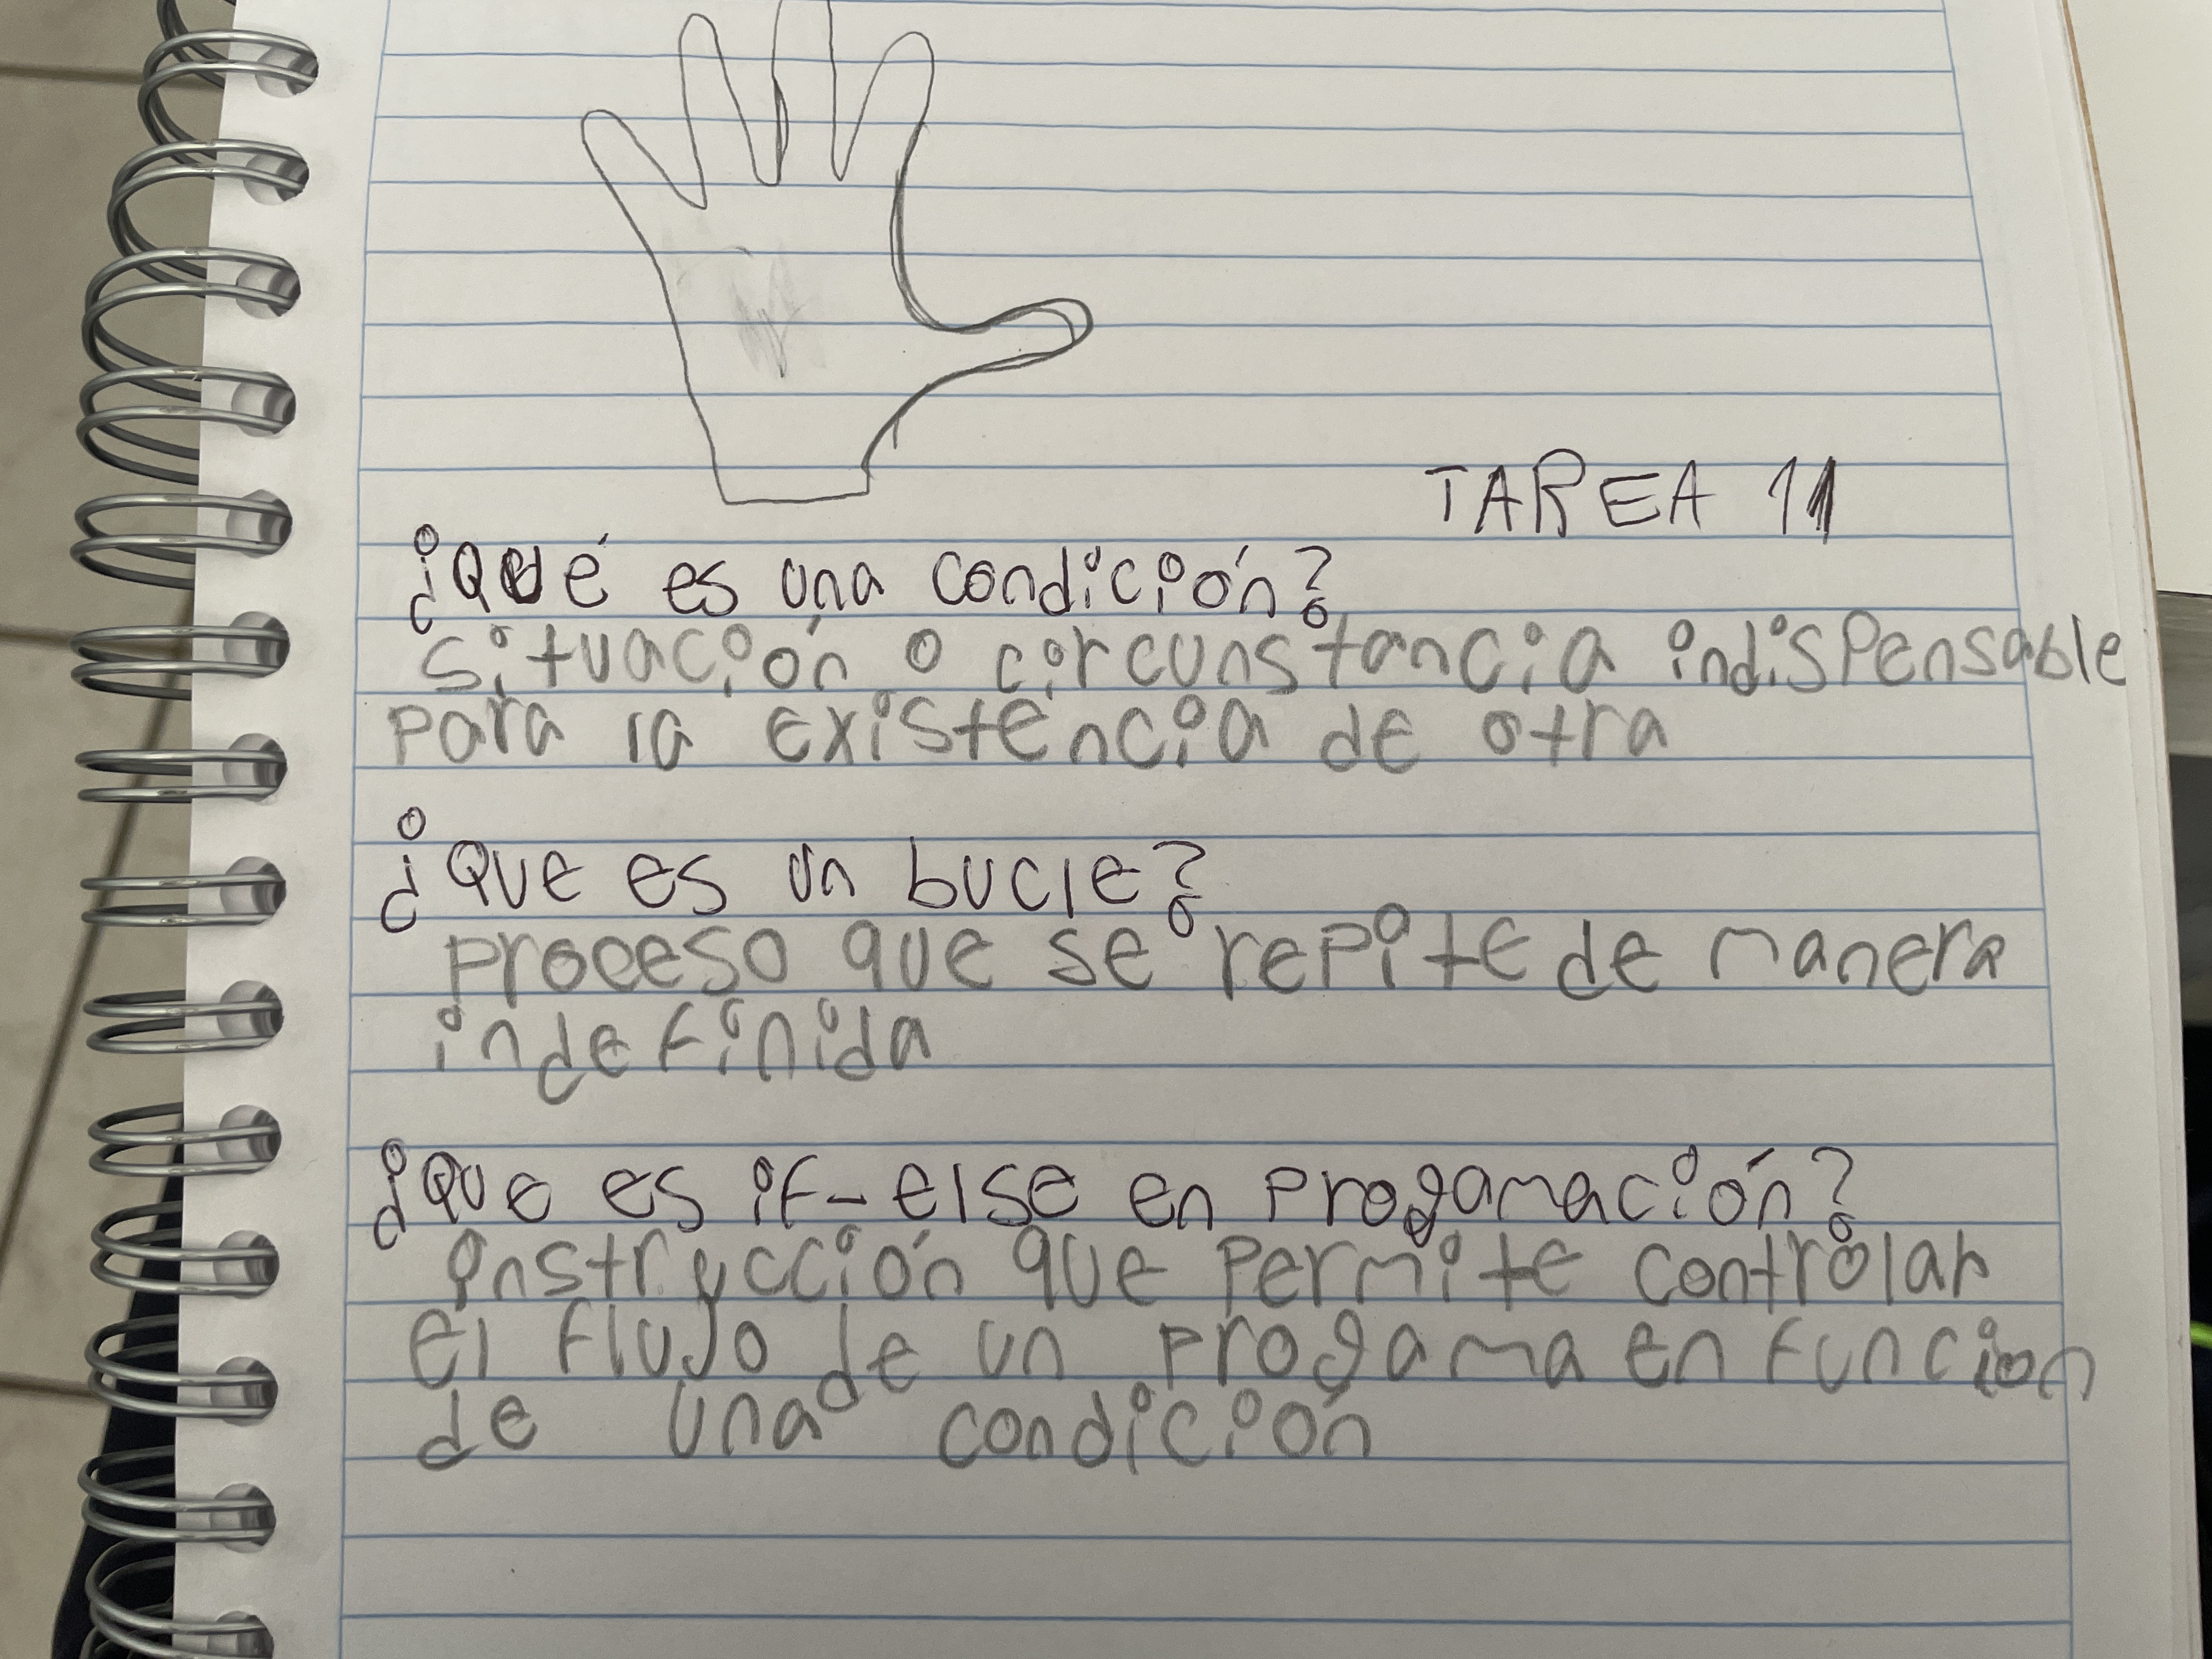 TAREA 11
¿Qué es una condición?
situación o circunstancia indispensable
para la existencia de otra
¿Que es un bucle?
proceso que se repite de manera
indefinida
¿Que es if-else en progamación?
instrucción que permite controlar
el flujo de un progama en funcion
de una condición